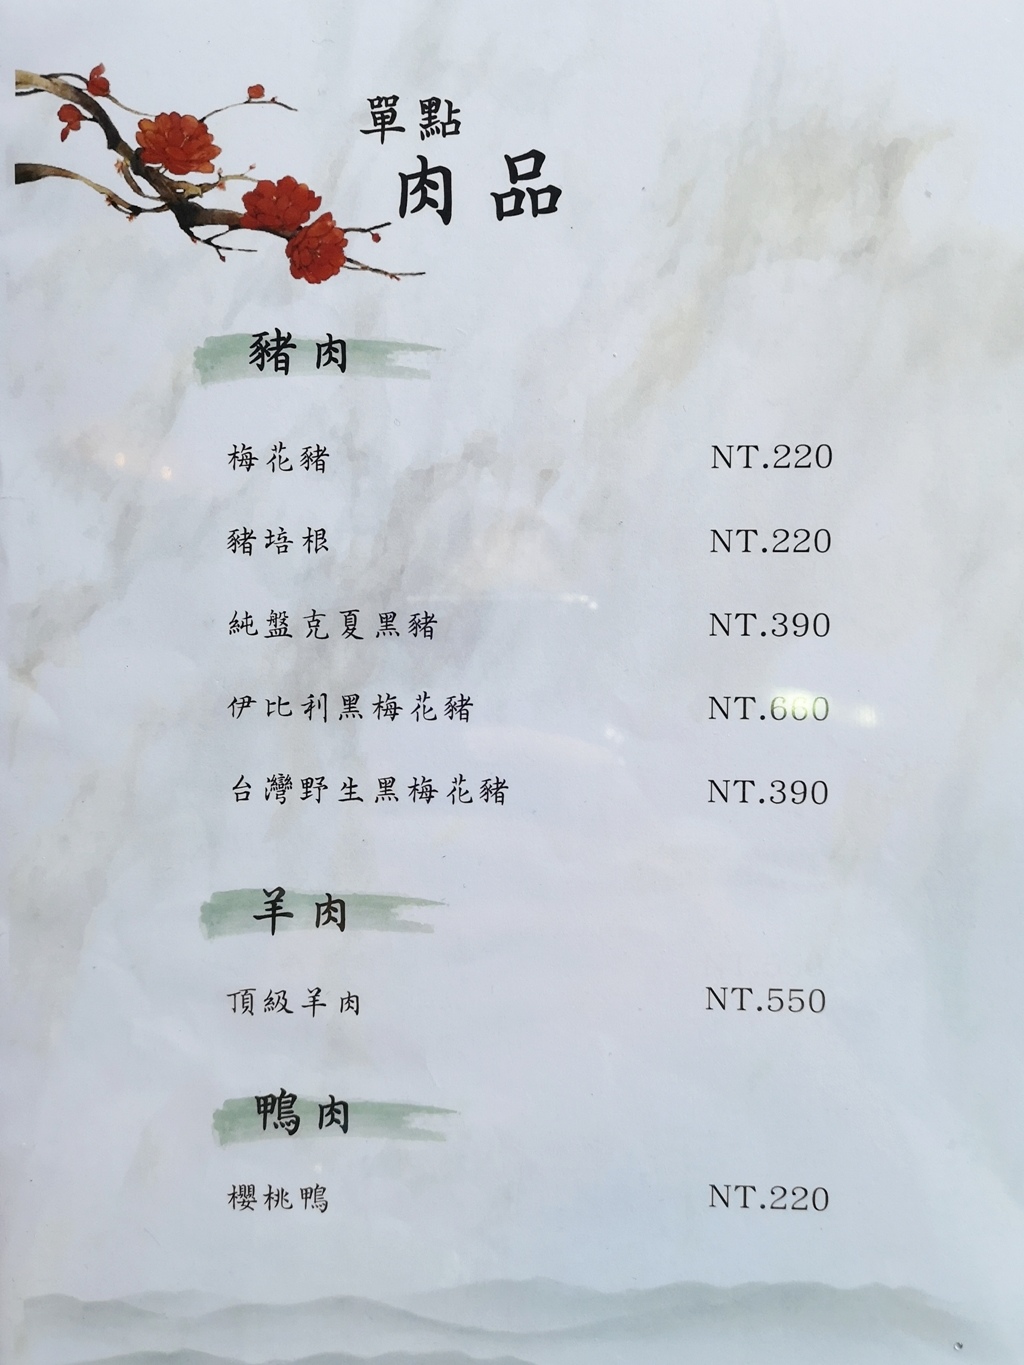 單點
肉品
豬肉
梅花豬 NT.220
豬培根 NT.220
純盤克夏黑豬 NT.390
伊比利黑梅花豬 NT.660
台灣野生黑梅花豬 NT.390
羊肉
頂級羊肉 NT.550
鴨肉
櫻桃鴨 NT.220